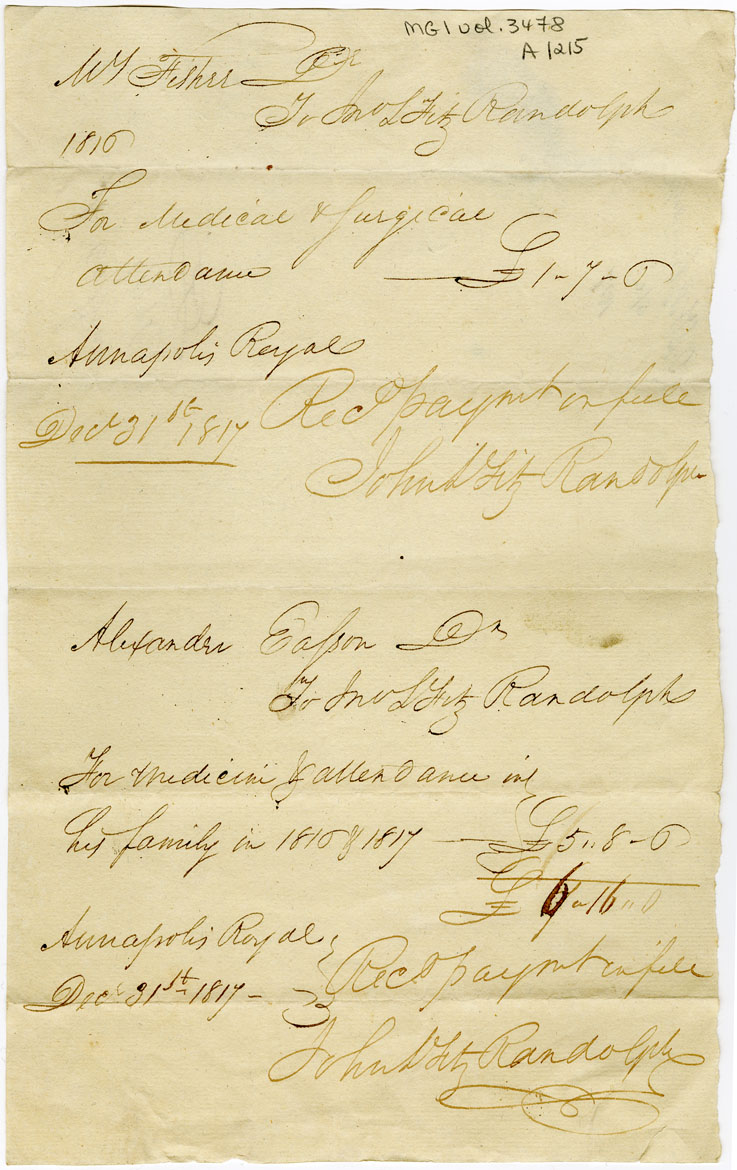 MG1 vol. 3478
A 1215
Mr Fisher Dr
To Jno L Fitz Randolph
1816
For Medical & Surgical
attendance £1-7-6
Annapolis Royal
Decr 31st 1817 Recd paymt in full
John L Fitz Randolph
Alexander Easson Dr
To Jno L Fitz Randolph
For Medicine & attendance in
his family in 1816 & 1817 £5"8-6
£6"16"0
Annapolis Royal
Decr 31st 1817- Recd paymt in full
John L Fitz Randolph